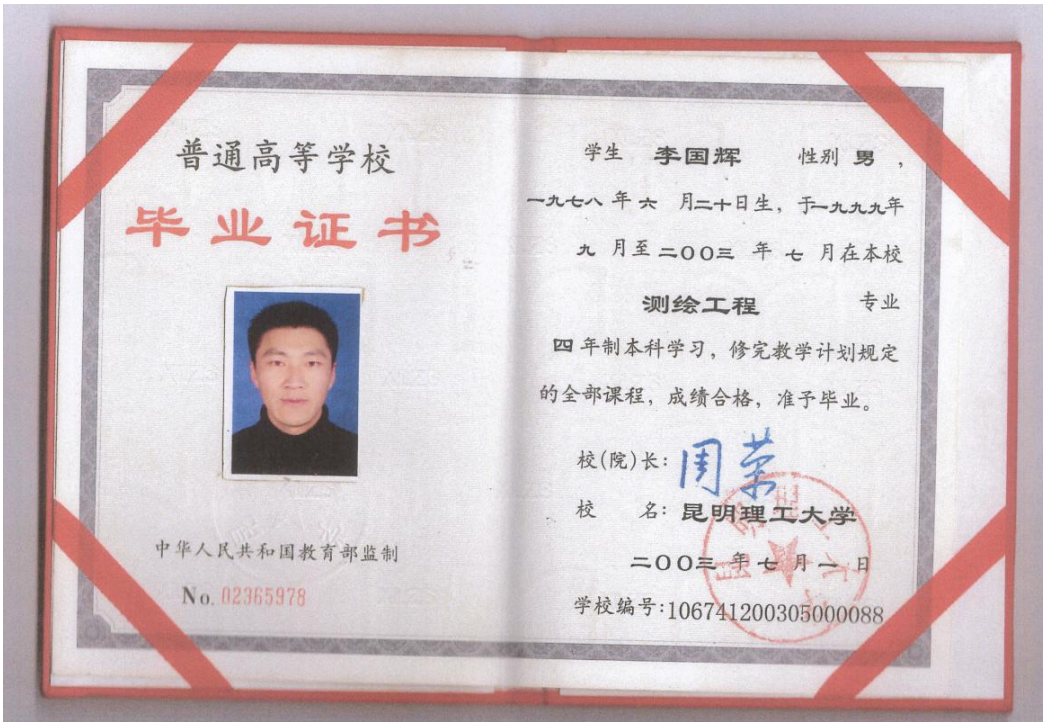 普通高等学校
毕业证书
中华人民共和国教育部监制
No. 02365978
学生 李国辉 性别 男，
一九七八年六月二十日生，于一九九九年
九月至二〇〇三年七月在本校
测绘工程 专业
四年制本科学习，修完教学计划规定
的全部课程，成绩合格，准予毕业。
校(院)长：周荣
校 名：昆明理工大学
二〇〇三年七月一日
学校编号:106741200305000088
昆明理工大学